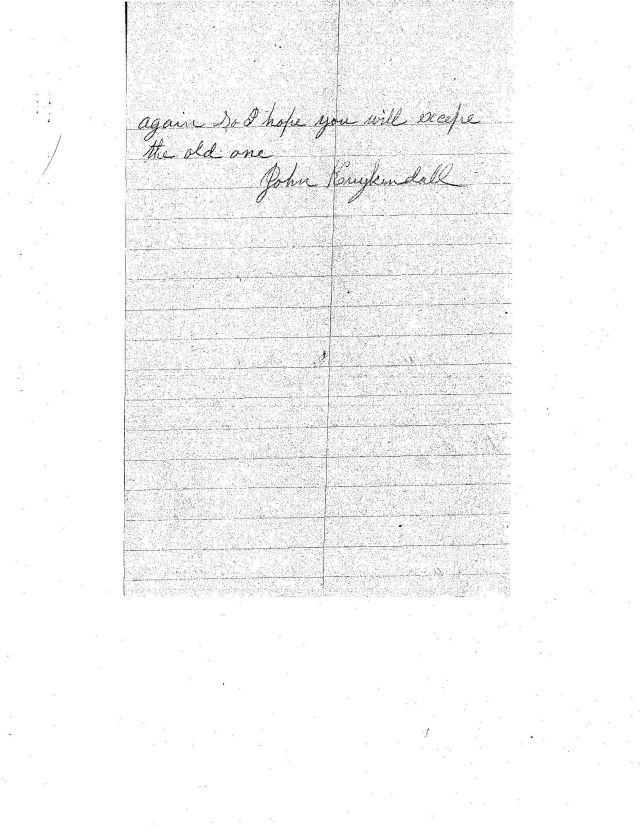 again So I hope you will excepe
the old one
John Kuykendall